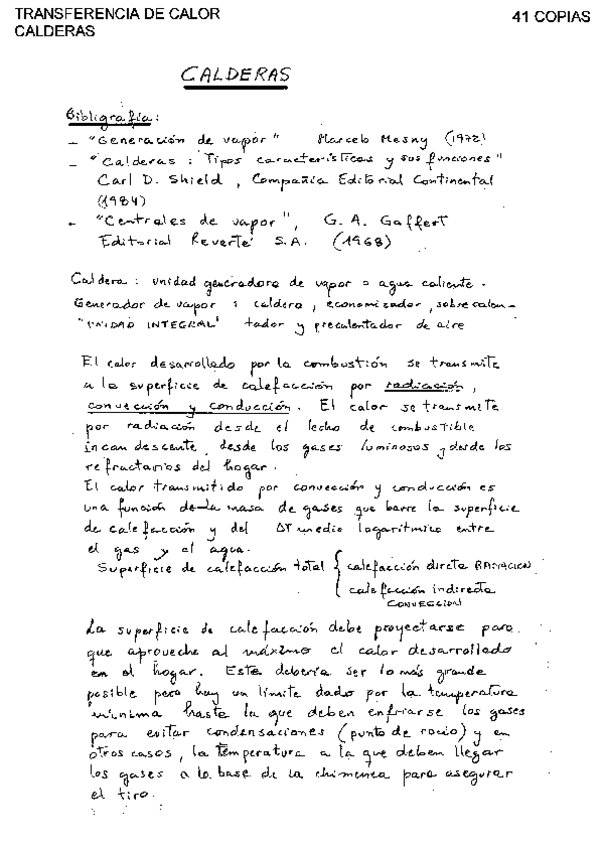 TRANSFERENCIA DE CALOR
CALDERAS
41 COPIAS
CALDERAS
Bibligrafía:
- "Generación de vapor" Marcelo Mesny (1972)
- "Calderas: Tipos características y sus funciones"
Carl D. Shield, Compañía Editorial Continental
(1984)
- "Centrales de vapor", G. A. Gaffert
Editorial Reverté S.A. (1968)
Caldera: unidad generadora de vapor o agua caliente.
Generador de vapor: caldera, economizador, sobrecalen-
"UNIDAD INTEGRAL" tador y precalentador de aire
El calor desarrollado por la combustión se transmite
a la superficie de calefacción por radiación,
convección y conducción. El calor se transmite
por radiación desde el lecho de combustible
incandescente, desde los gases luminosos y desde los
refractarios del hogar.
El calor transmitido por convección y conducción es
una función de la masa de gases que barre la superficie
de calefacción y del ΔT medio logarítmico entre
el gas y el agua.
Superficie de calefacción total { calefacción directa RADIACION
calefacción indirecta
CONVECCION
La superficie de calefacción debe proyectarse para
que aproveche al máximo el calor desarrollado
en el hogar. Esta debería ser lo más grande
posible pero hay un límite dado por la temperatura
mínima hasta la que deben enfriarse los gases
para evitar condensaciones (punto de rocío) y en
otros casos, la temperatura a la que deben llegar
los gases a la base de la chimenea para asegurar
el tiro.